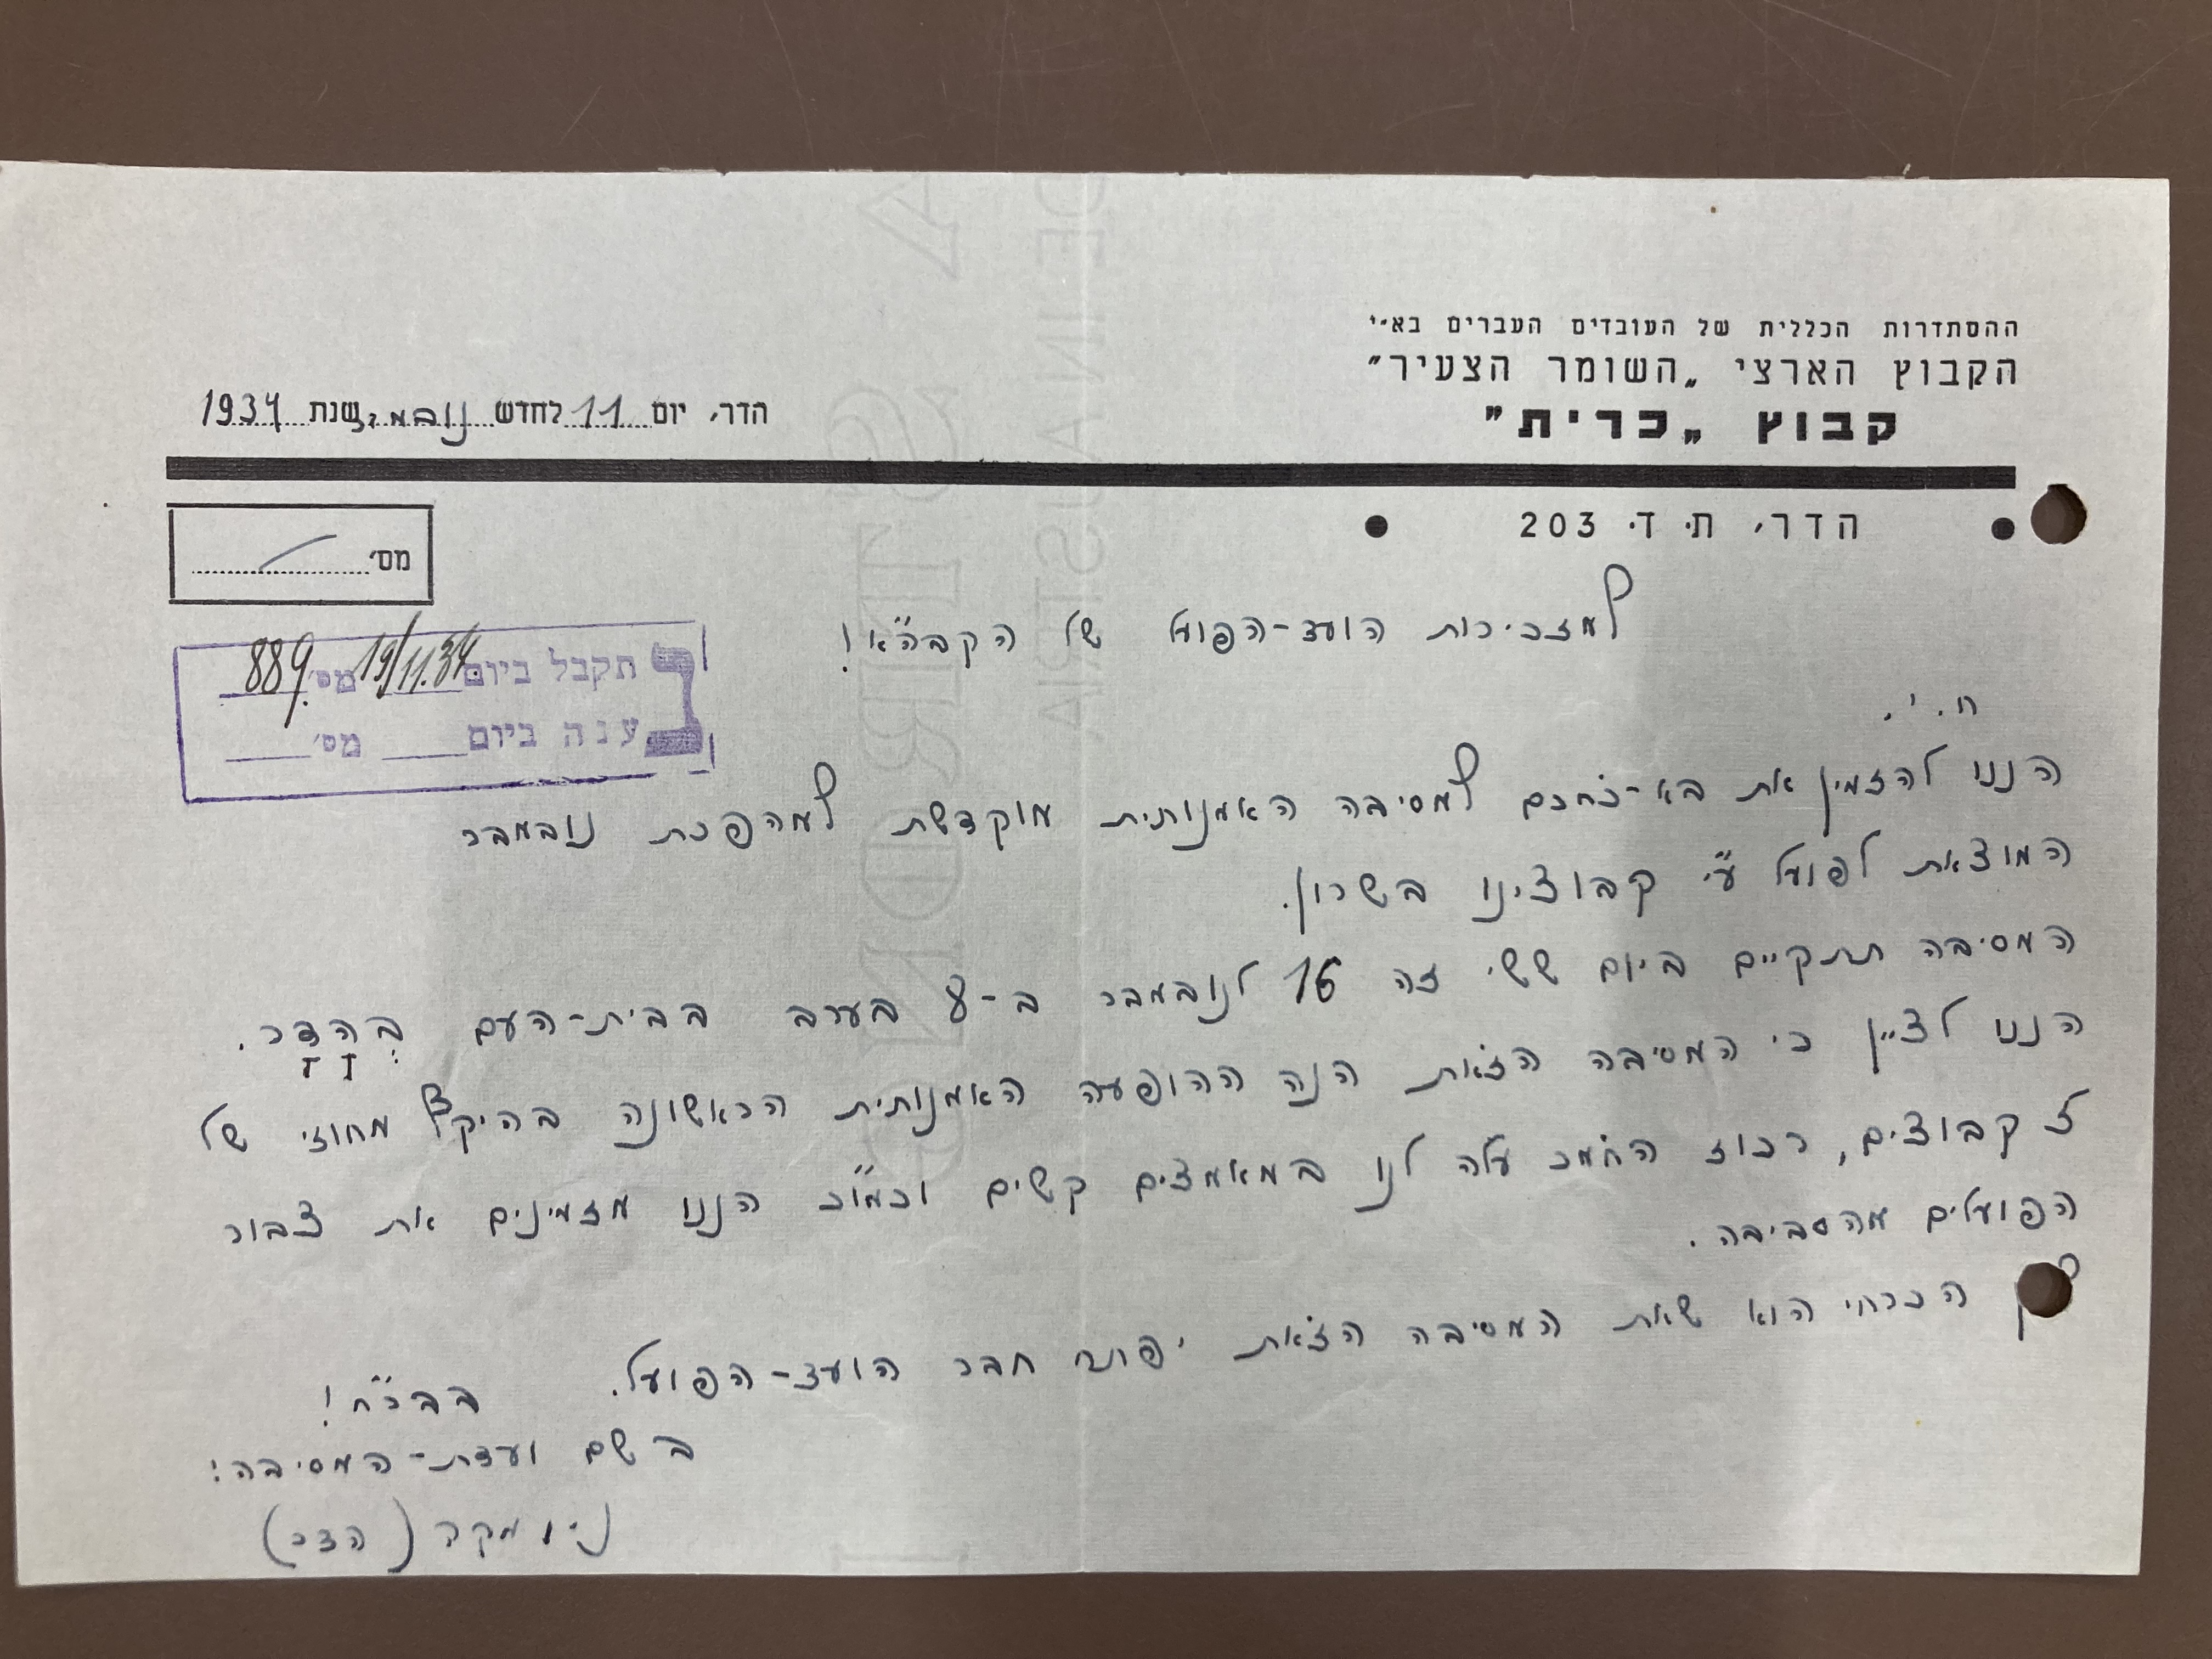 ההסתדרות הכללית של העובדים העברים בא״י
הקבוץ הארצי „השומר הצעיר״
קבוץ „כרית״
הדר, יום 11 לחדש נובמבר שנת 1934
הדר, ת. ד. 203
מס׳
למזכירות הועד-הפועל של הקבה״א!
תקבל ביום 19/11.34 מס׳ 889
ענה ביום מס׳
ח. י.
הננו להזמין את בא-כחכם למסיבה האמנותית מוקדשת למהפכת נובמבר
המוצאת לפועל ע״י קבוצינו בשרון.
המסיבה תתקיים ביום ששי זה 16 לנובמבר ב-8 בערב בבית-העם בְּהָדָר.
הננו לציין כי המסיבה הזאת הנה ההופעה האמנותית הראשונה בהיקף מחוזי של
7 קבוצים, רכוז החמר עלה לנו במאמצים קשים וכמ״כ הננו מזמינים את צבור
הפועלים מהסביבה.
הכרחי הוא שאת המסיבה הזאת יפתח חבר הועד-הפועל.
בברכ״ח!
בשם ועדת-המסיבה:
ניומקה (הדר)